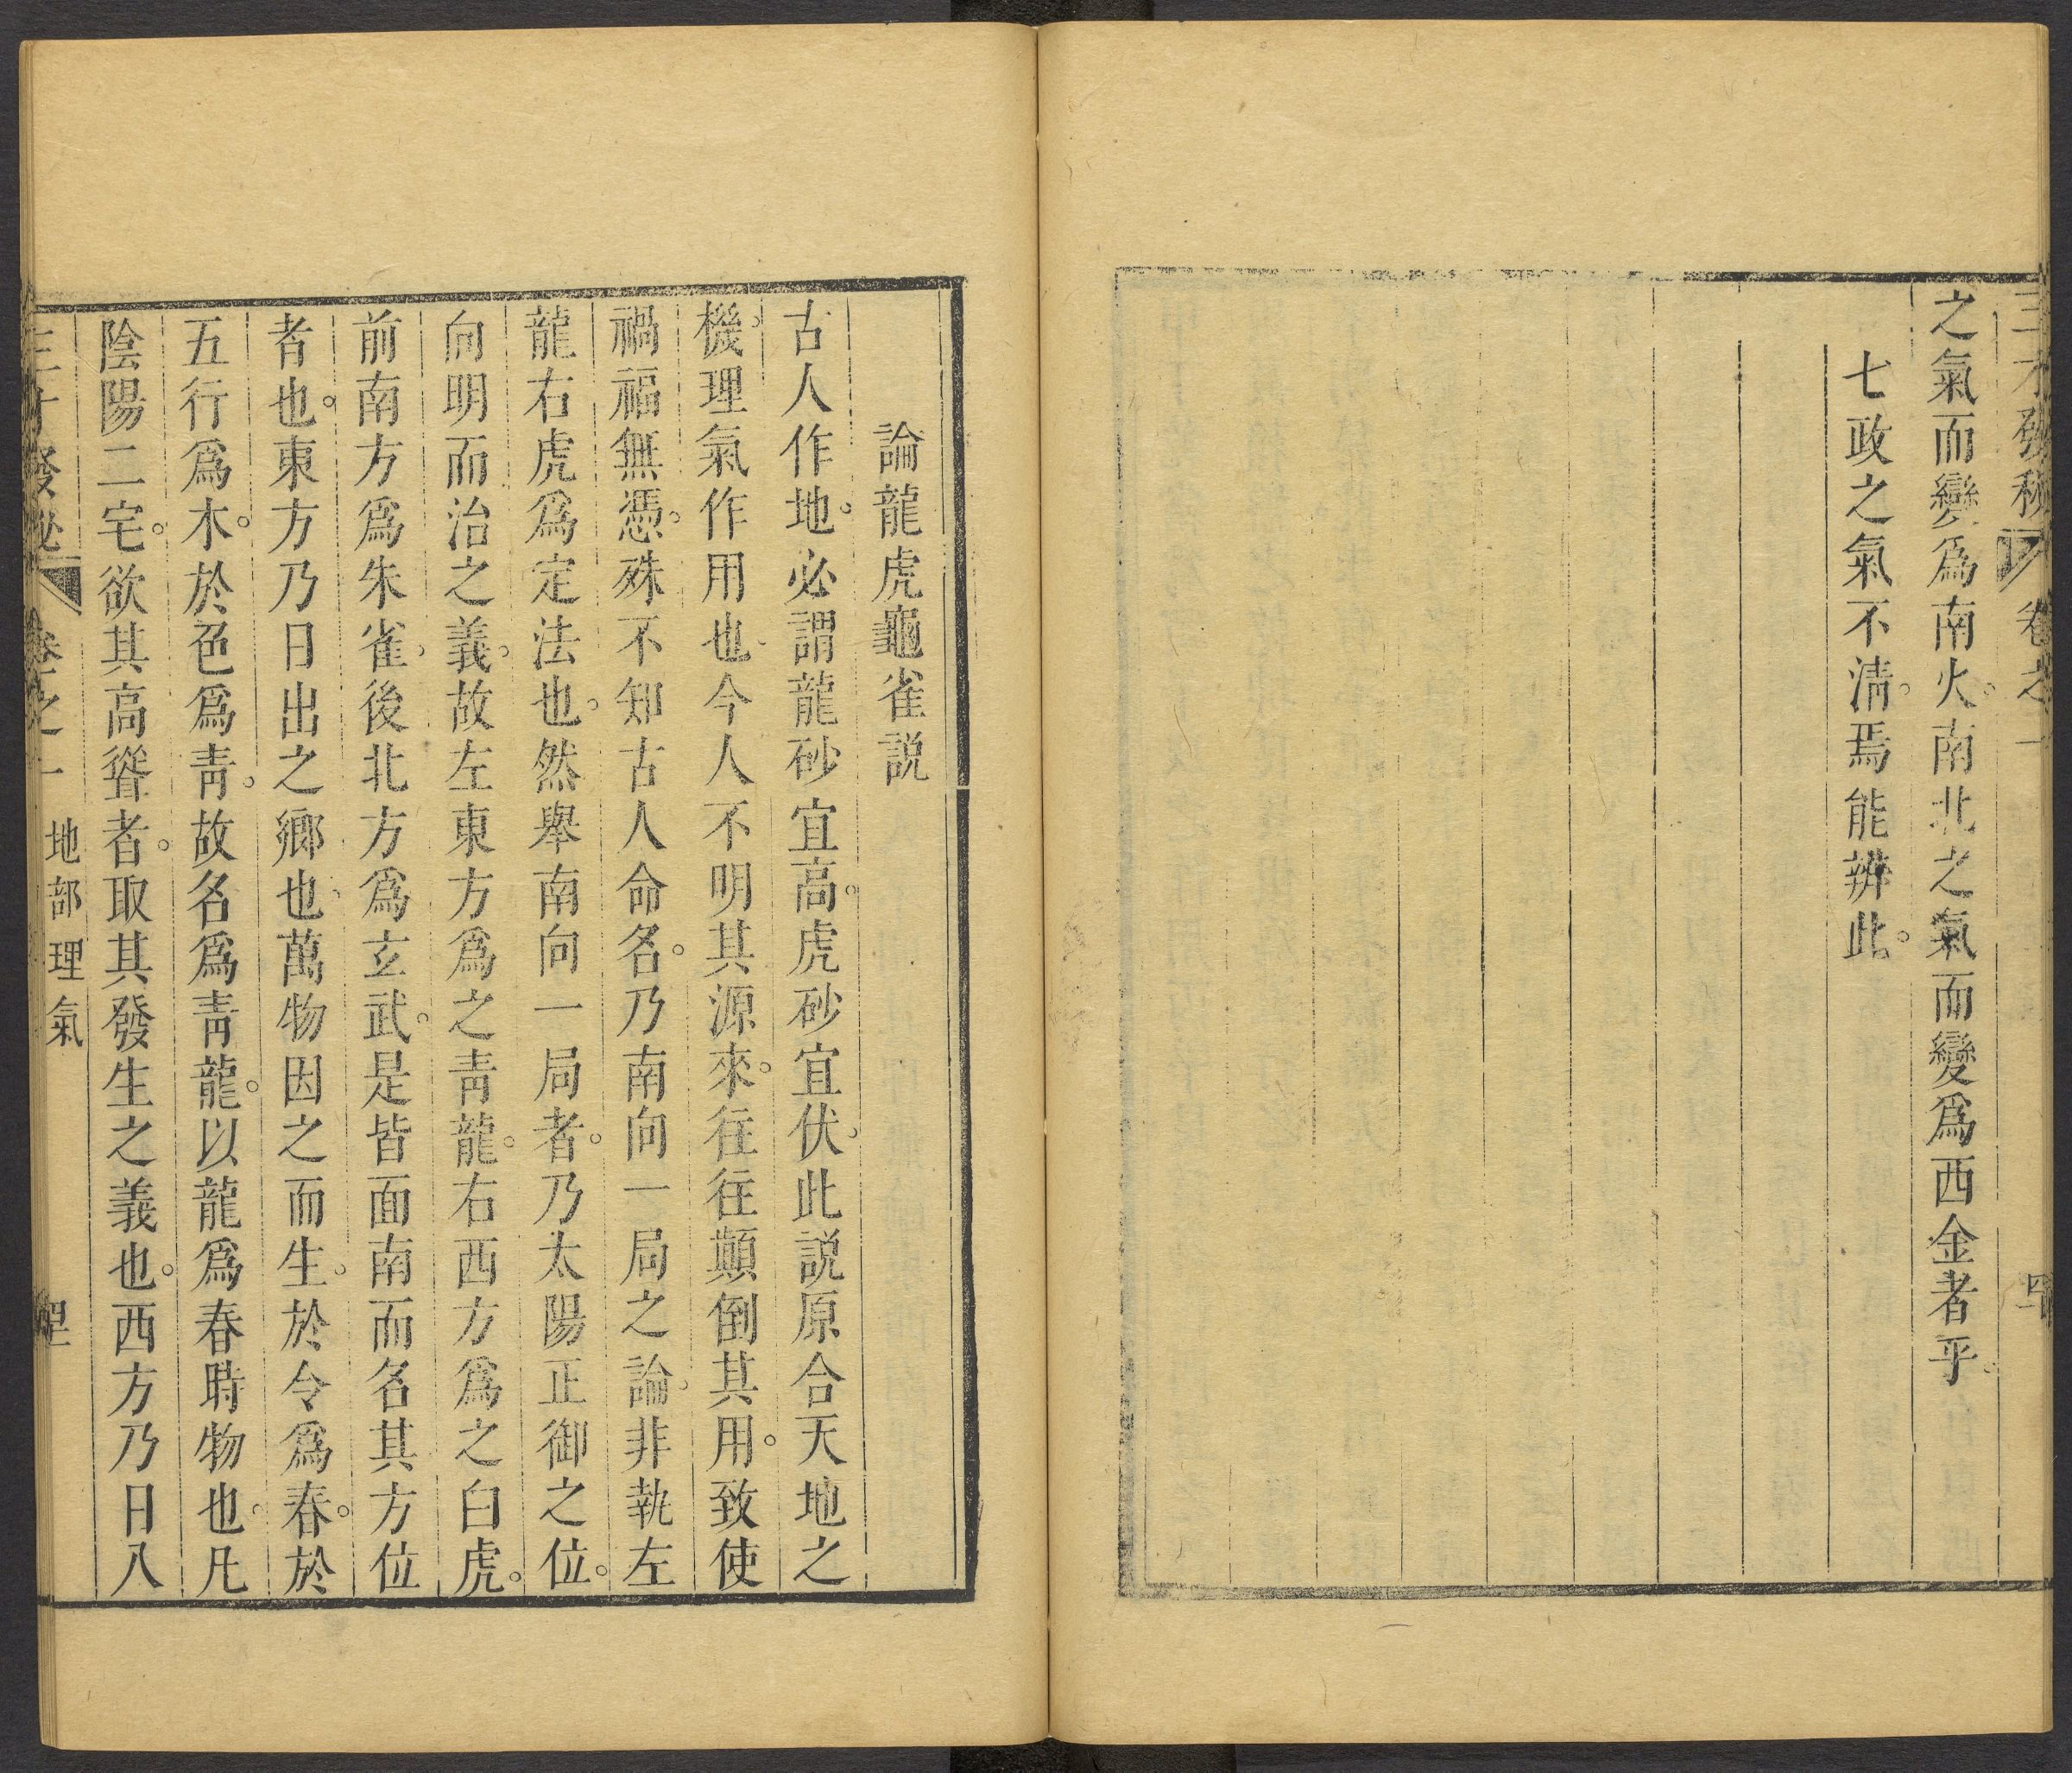 三才發秘 卷之一
之氣而變爲南火。南北之氣而變爲西金者乎。
七政之氣不淸。焉能辨此。
論龍虎龜雀説
古人作地。必謂龍砂宜高。虎砂宜伏。此説原合天地之
機。理氣作用也。今人不明其源來。往往顛倒其用。致使
禍福無憑。殊不知古人命名。乃南向一局之論。非執左
龍右虎爲定法也。然舉南向一局者。乃太陽正御之位。
向明而治之義。故左東方爲之靑龍。右西方爲之白虎。
前南方爲朱雀。後北方爲玄武。是皆面南而名其方位
者也。東方乃日出之鄕也。萬物因之而生。於令爲春。於
五行爲木。於色爲靑。故名爲靑龍。以龍爲春時物也。凡
陰陽二宅。欲其高聳者。取其發生之義也。西方乃日入
三才發秘 卷之一 地部理氣